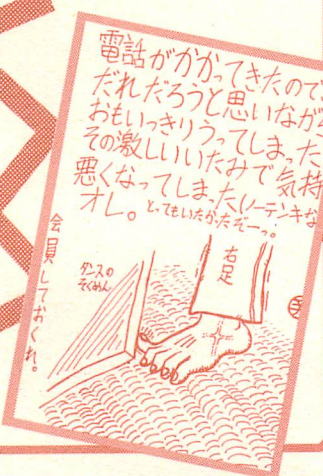 電話がかかってきたので、
だれだろうと思いなが
おもいっきりうってしまった
その激しいいたみで気持
悪くなってしまった(ノーテンキな
オレ。とってもいたかったぞーっ。
右足
タンスの
そくめん
会員しておくれ。